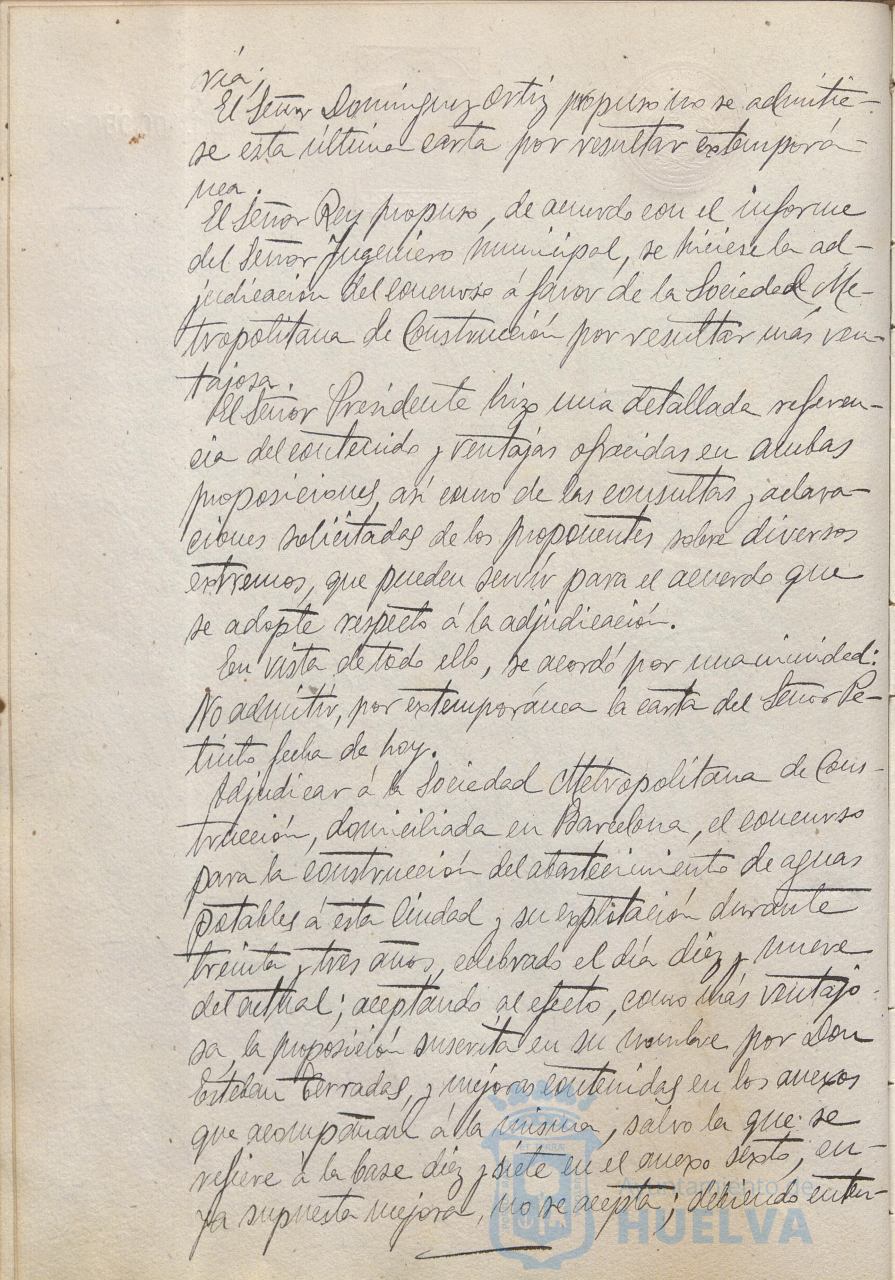 vía.
El Señor Domínguez Ortiz propuso no se admitie-
se esta última carta por resultar extemporá-
nea.
El Señor Rey propuso, de acuerdo con el informe
del Señor Ingeniero Municipal, se hiciese la ad-
judicación del concurso á favor de la Sociedad Me-
tropolitana de Construcción por resultar más ven-
tajosa.
El Señor Presidente hizo una detallada referen-
cia del contenido y ventajas ofrecidas en ambas
proposiciones, así como de las consultas y aclara-
ciones solicitadas de los proponentes sobre diversos
extremos, que pueden servir para el acuerdo que
se adopte respecto á la adjudicación.
En vista de todo ello, se acordó por unanimidad:
No admitir, por extemporánea la carta del Señor Pe-
tinto fecha de hoy.
Adjudicar á la Sociedad Metropolitana de Cons-
trucción, domiciliada en Barcelona, el concurso
para la construcción del abastecimiento de aguas
potables á esta Ciudad y su explotación durante
treinta y tres años, celebrado el día diez y nueve
del actual; aceptando al efecto, como más ventajo-
sa, la proposición suscrita en su nombre por Don
Esteban Terradas, y mejoras contenidas en los anexos
que acompañan á la misma, salvo la que se
refiere á la base diez y siete en el anexo sexto, cu-
ya supuesta mejora, no se acepta; debiendo enten-
Ayuntamiento de
HUELVA